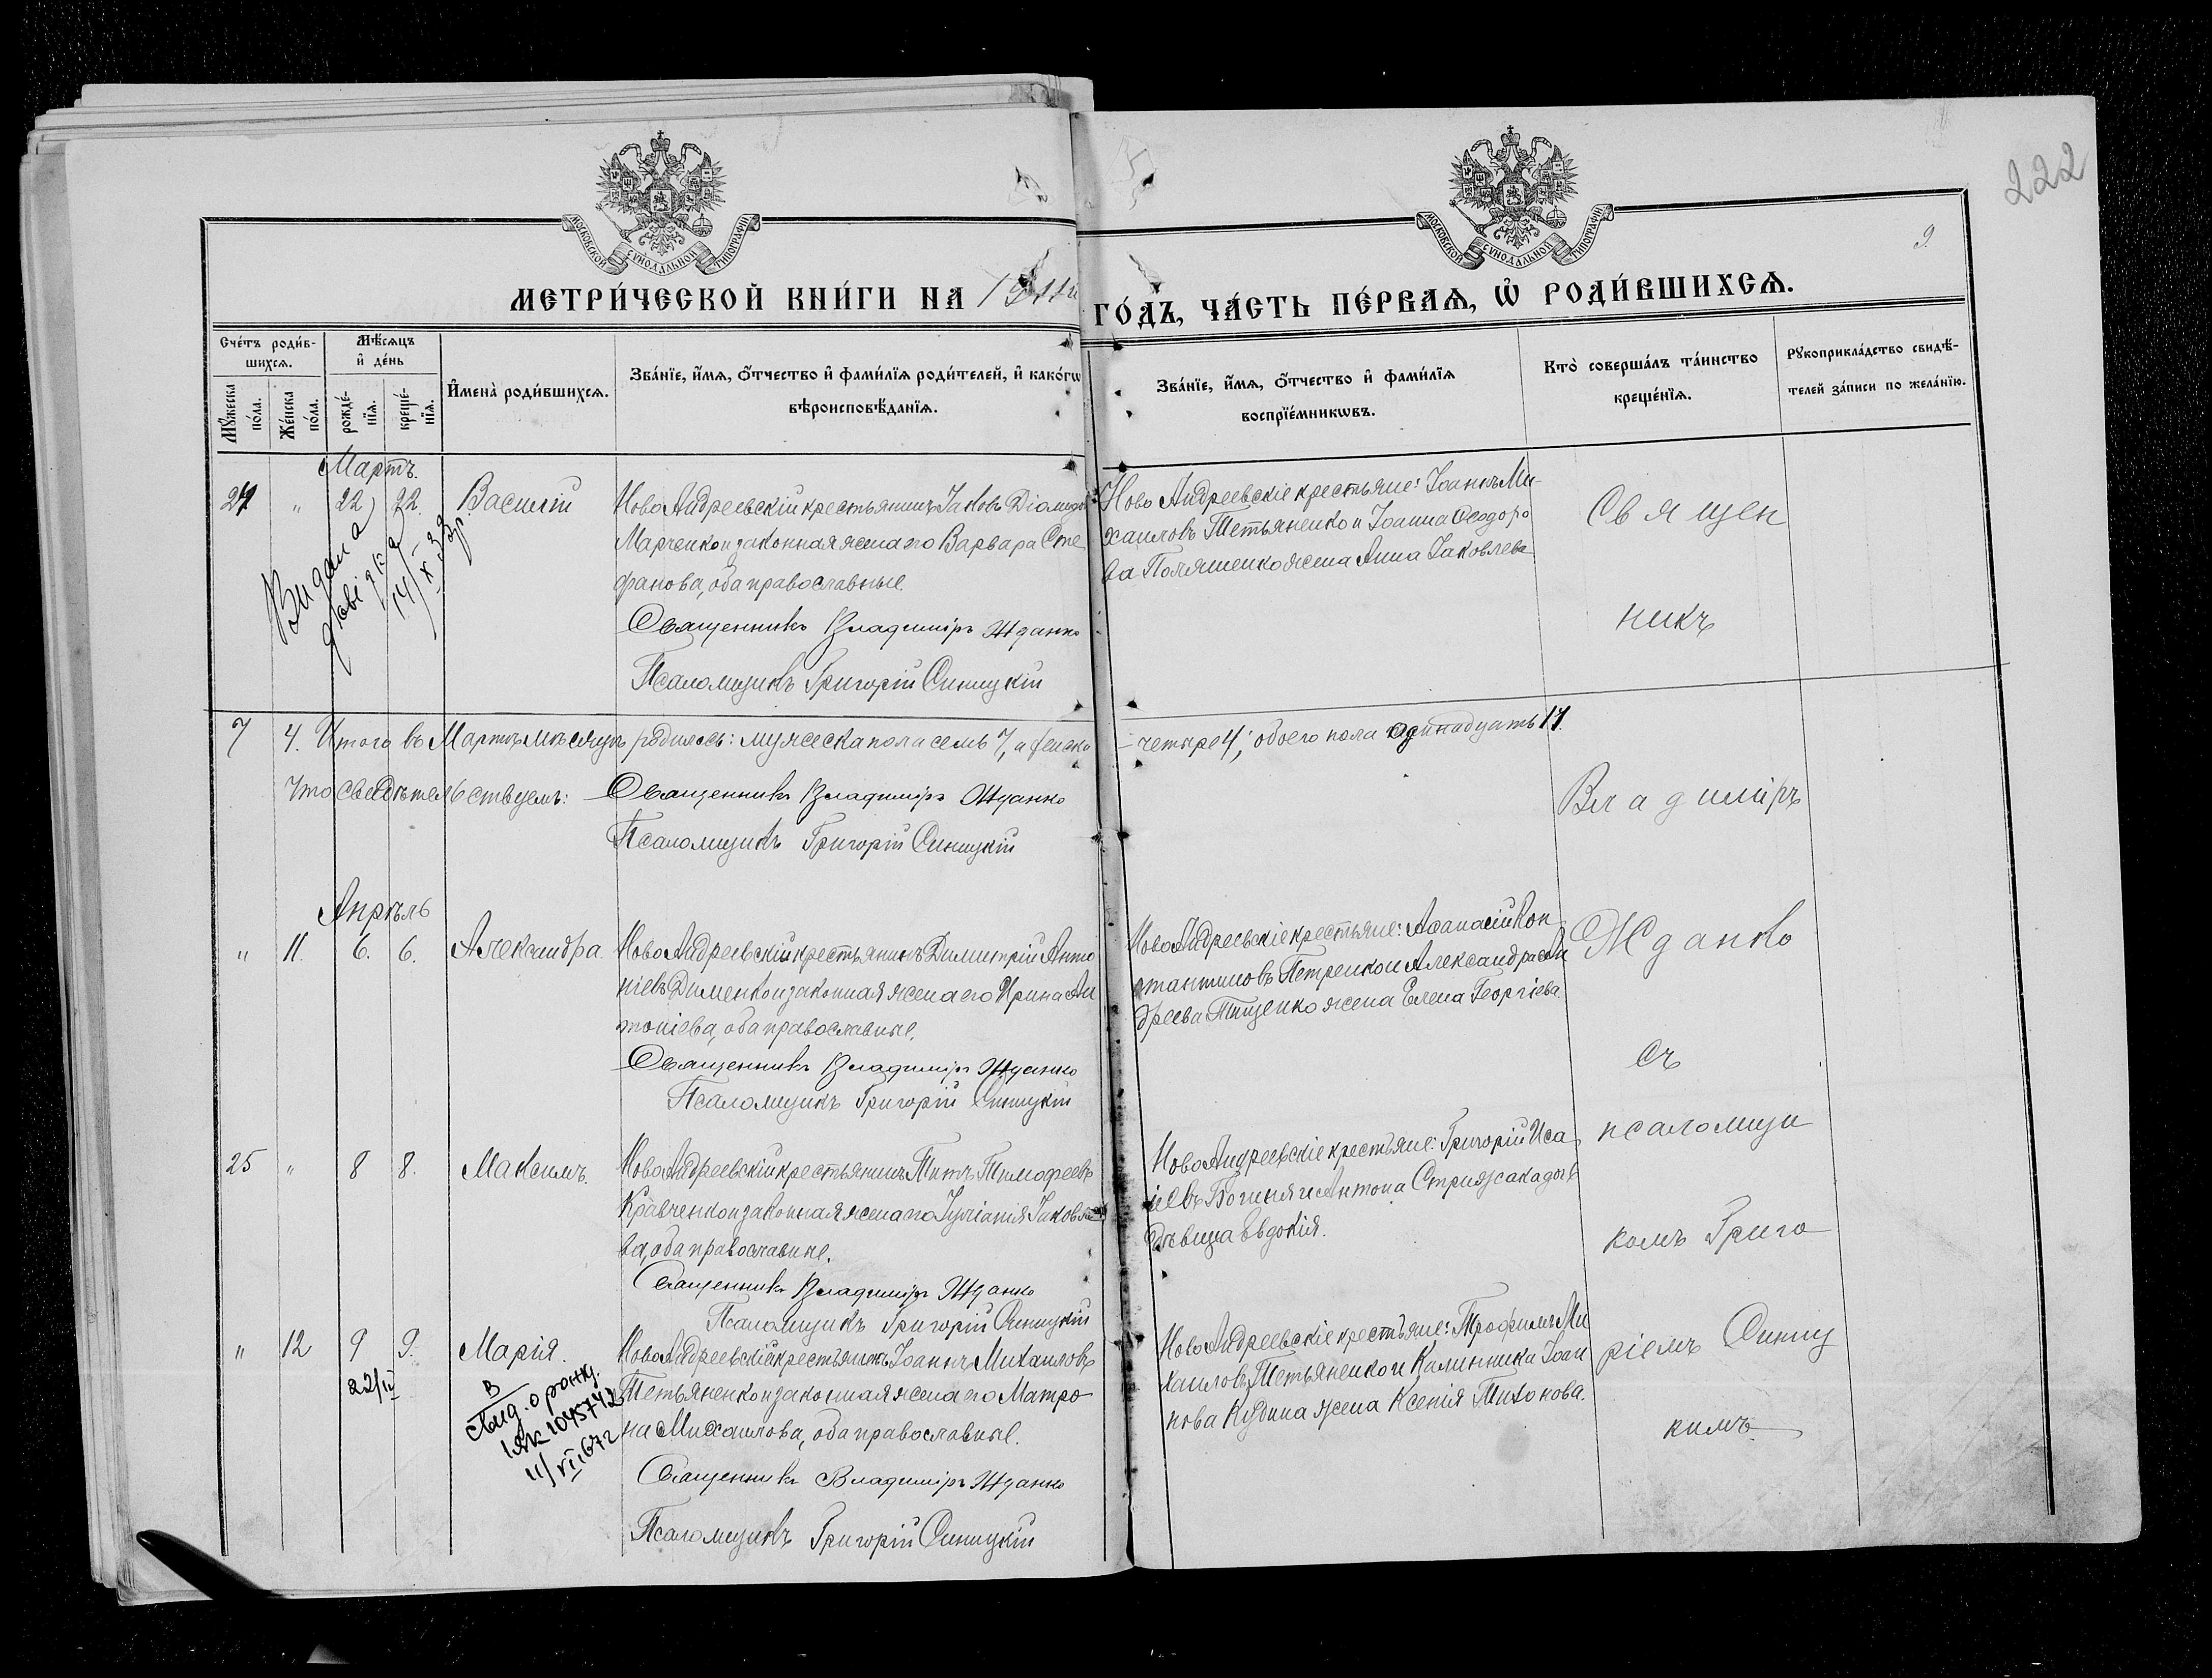 222
9.
МОСКОВСКОЙ СѴНОДАЛЬНОЙ ТИПОГРАФІИ
МОСКОВСКОЙ СѴНОДАЛЬНОЙ ТИПОГРАФІИ
МЕТРИ́ЧЕСКОЙ КНИ́ГИ НА 1911й
ГО́ДЪ, ЧА́СТЬ ПЕ́РВАѦ, Ѡ҆ РОДИ́ВШИХСѦ.
Сче́тъ роди́в-
шихсѧ.
Мꙋ́жеска по́ла.
Же́нска по́ла.
Мѣ́сѧцъ
и҆ де́нь
рожде́-нїѧ.
креще́-нїѧ.
И҆мена̀ роди́вшихсѧ.
Зва́нїе, и҆́мѧ, ѻ҆́тчество и҆ фами́лїѧ роди́телей, и҆ како́гѡ
вѣроисповѣ́данїѧ.
Зва́нїе, и҆́мѧ, ѻ҆́тчество и҆ фами́лїѧ
воспрїе́мникѡвъ.
Кто̀ соверша́лъ та́инство
креще́нїѧ.
Рꙋкоприкла́дство свидѣ́-
телей за́писи по жела́нїю.
Мартъ.
24 " 22 22. Василій
НовоАндреевскій крестьянинъ Іаковъ Діомидовъ
Марченко и законная жена его Варвара Сте
фанова, оба православные.
Священникъ Владиміръ Жданко
Псаломщикъ Григорій Синицкій
Ново Андреевскіе крестьяне: Іоаннъ Ми-
хаиловъ Тетьяненко и Іоанна Ѳеодоро
ва Поляшенко жена Анна Іаковлева
Видана
довідка
14/X 39р
7 4. Итого въ Мартѣ мѣсяцѣ родилось: мужеска пола семь 7, а женска
– четыре 4; обоего пола одинадцать 11.
Что свидѣтельствуемъ: Священникъ Владиміръ Жданко
Псаломщикъ Григорій Синицкій
Апрѣль
" 11. 6. 6. Александра.
НовоАндреевскій крестьянинъ Димитрій Анто
ніевъ Дименко и законная жена его Ирина Ан
тоніева, оба православные.
Священникъ Владиміръ Жданко
Псаломщикъ Григорій Синицкій
НовоАндреевскіе крестьяне: Аѳанасій Кон
стантиновъ Петренко и Александра Ан
дреева Тищенко жена Елена Георгіева.
25 " 8 8. Максимъ.
НовоАндреевскій крестьянинъ Титъ Тимофеевъ
Кравченко и законная жена его Іуліанія Іаковле
ва, оба православные.
Священникъ Владиміръ Жданко
Псаломщикъ Григорій Синицкій
НовоАндреевскіе крестьяне: Григорій Иса
іевъ Богиня и Антона Стрижака дочь
дѣвица Евдокія.
" 12 9 9. Марія.
22/IV
В
свид. о рожд.
IЯК 1045742
11/VII 672
НовоАндреевскій крестьянинъ Іоаннъ Михаиловъ
Тетьяненко и законная жена его Матро
на Михаилова, оба православные.
Священникъ Владиміръ Жданко
Псаломщикъ Григорій Синицкій
НовоАндреевскіе крестьяне: Трофимъ Ми
хаиловъ Тетьяненко и Калинника Іоан
нова Кудина жена Ксенія Тихонова.
Священ
никъ
Владиміръ
Жданко
съ
псаломщи
комъ Григо
ріемъ Синиц
кимъ